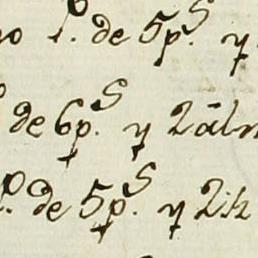 no 1. de 5p.s y
de 6p.s y 2 alm
de 5p.s y 2